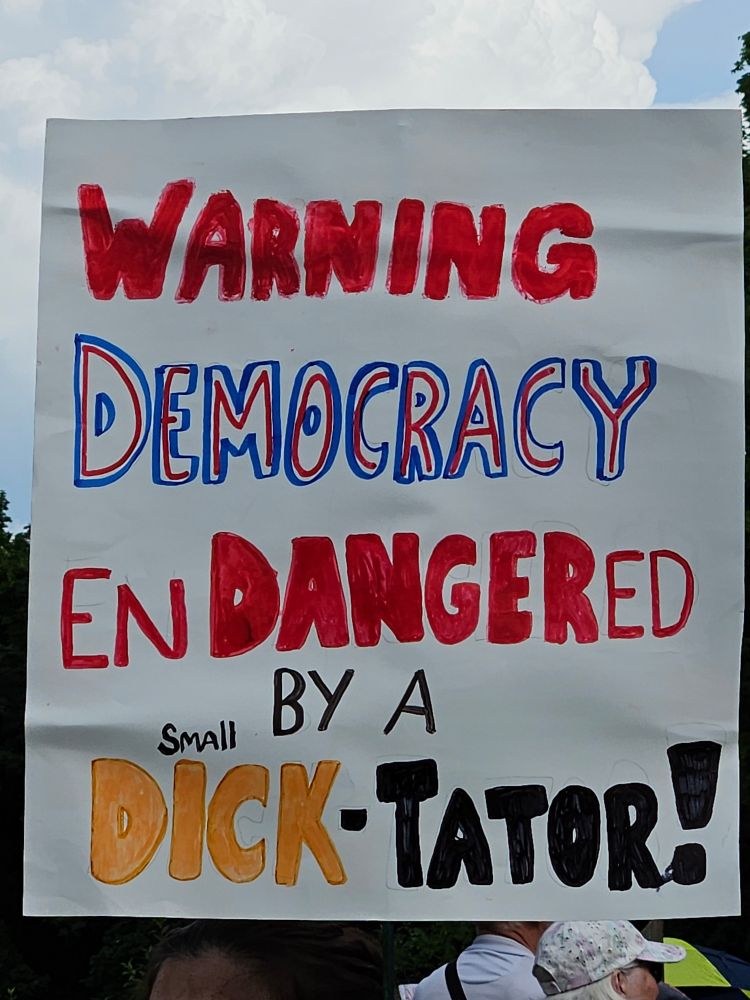 WARNING
DEMOCRACY
ENDANGERED
BY A
Small
DICK-TATOR!